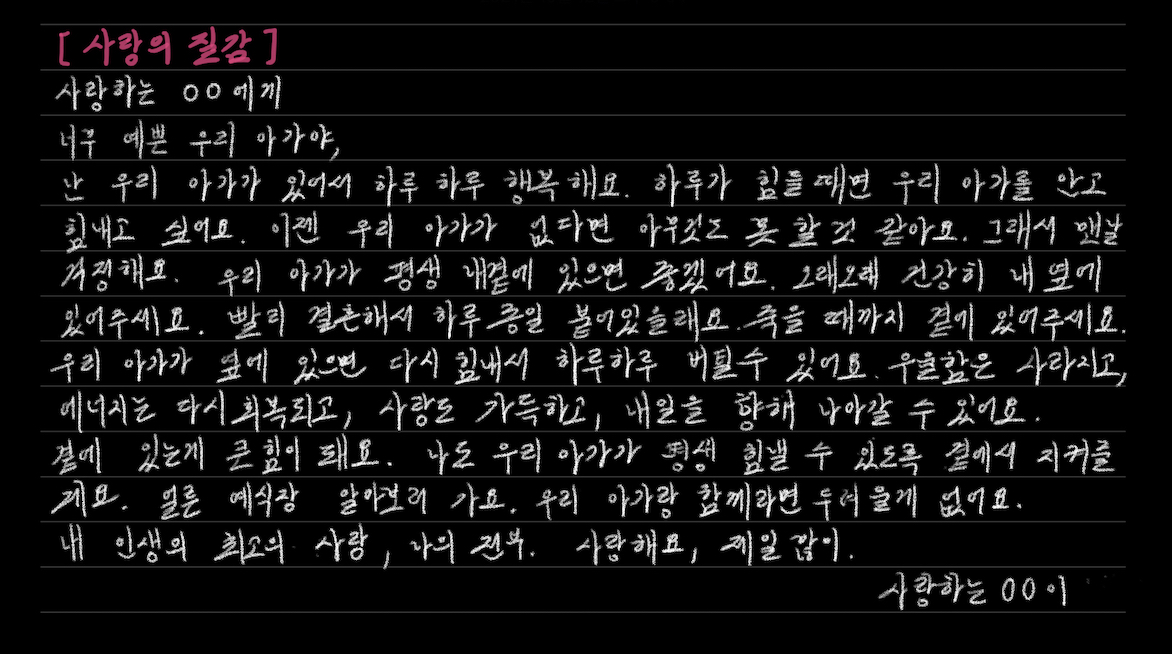 [ 사랑의 질감 ]
사랑하는 OO에게
너무 예쁜 우리 아가야,
난 우리 아가가 있어서 하루 하루 행복해요. 하루가 힘들때면 우리 아가를 안고
힘내고 싶어요. 이젠 우리 아가가 없다면 아무것도 못 할 것 같아요. 그래서 맨날
걱정해요. 우리 아가가 평생 내곁에 있으면 좋겠어요. 오래오래 건강히 내 옆에
있어주세요. 빨리 결혼해서 하루종일 붙어있을래요. 죽을 때까지 곁에 있어주세요.
우리 아가가 옆에 있으면 다시 힘내서 하루하루 버틸수 있어요. 우울함은 사라지고,
에너지는 다시 회복되고, 사랑도 가득하고, 내일을 향해 나아갈 수 있어요.
곁에 있는게 큰힘이 돼요. 나도 우리 아가가 평생 힘낼 수 있도록 곁에서 지켜줄
게요. 얼른 예식장 알아보러 가요. 우리 아가랑 함께라면 두려울게 없어요.
내 인생의 최고의 사랑, 나의 전부. 사랑해요, 제일 많이.
사랑하는 OO이